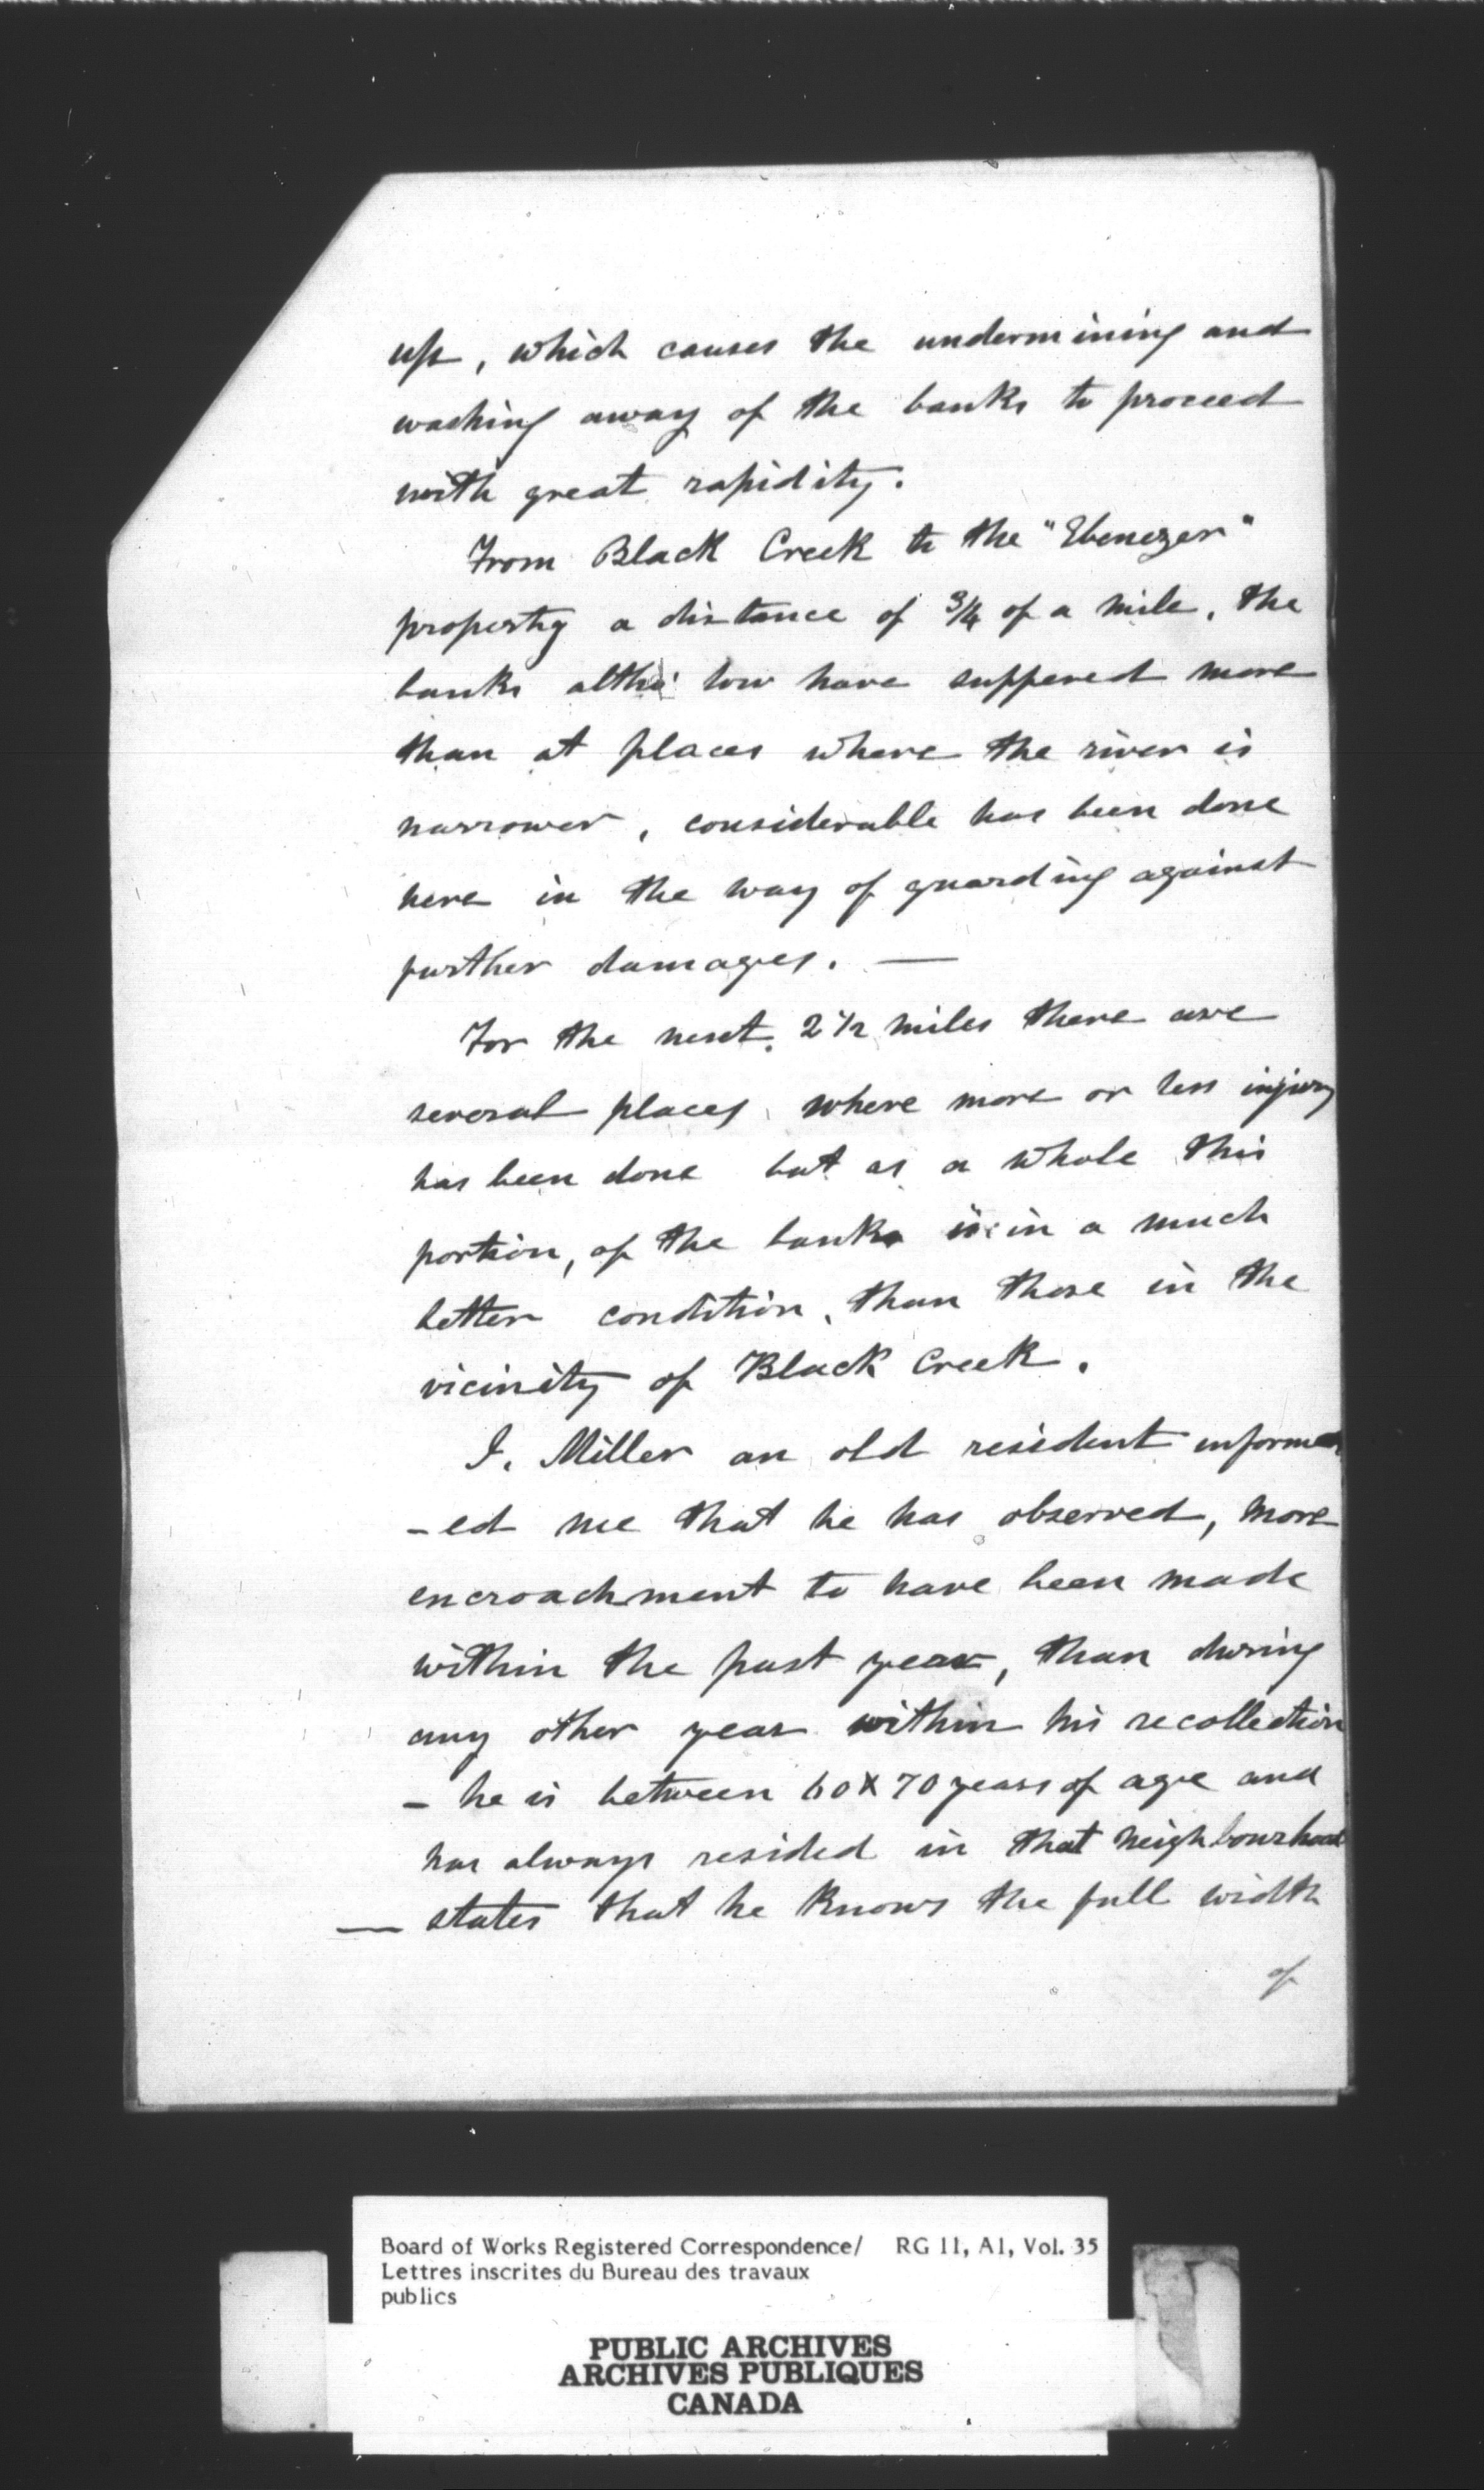 up, which causes the undermining and
washing away of the banks to proceed
with great rapidity.
From Black Creek to the "Ebenezer"
property a distance of 3/4 of a mile, the
banks altho' low have suffered more
than at places where the river is
narrower, considerable has been done
here in the way of guarding against
further damages. —
For the next. 2 1/2 miles there are
several places, where more or less injury
has been done but as a whole this
portion, of the banks is in a much
better condition, than those in the
vicinity of Black Creek.
I. Miller an old resident inform
-ed me that he has observed, more
encroachment to have been made
within the past year, than during
any other year within his recollection
- he is between 60 & 70 years of age and
has always resided in that neighbourhood
— states that he knows the full width
of
Board of Works Registered Correspondence/ RG 11, A1, Vol. 35
Lettres inscrites du Bureau des travaux
publics
PUBLIC ARCHIVES
ARCHIVES PUBLIQUES
CANADA